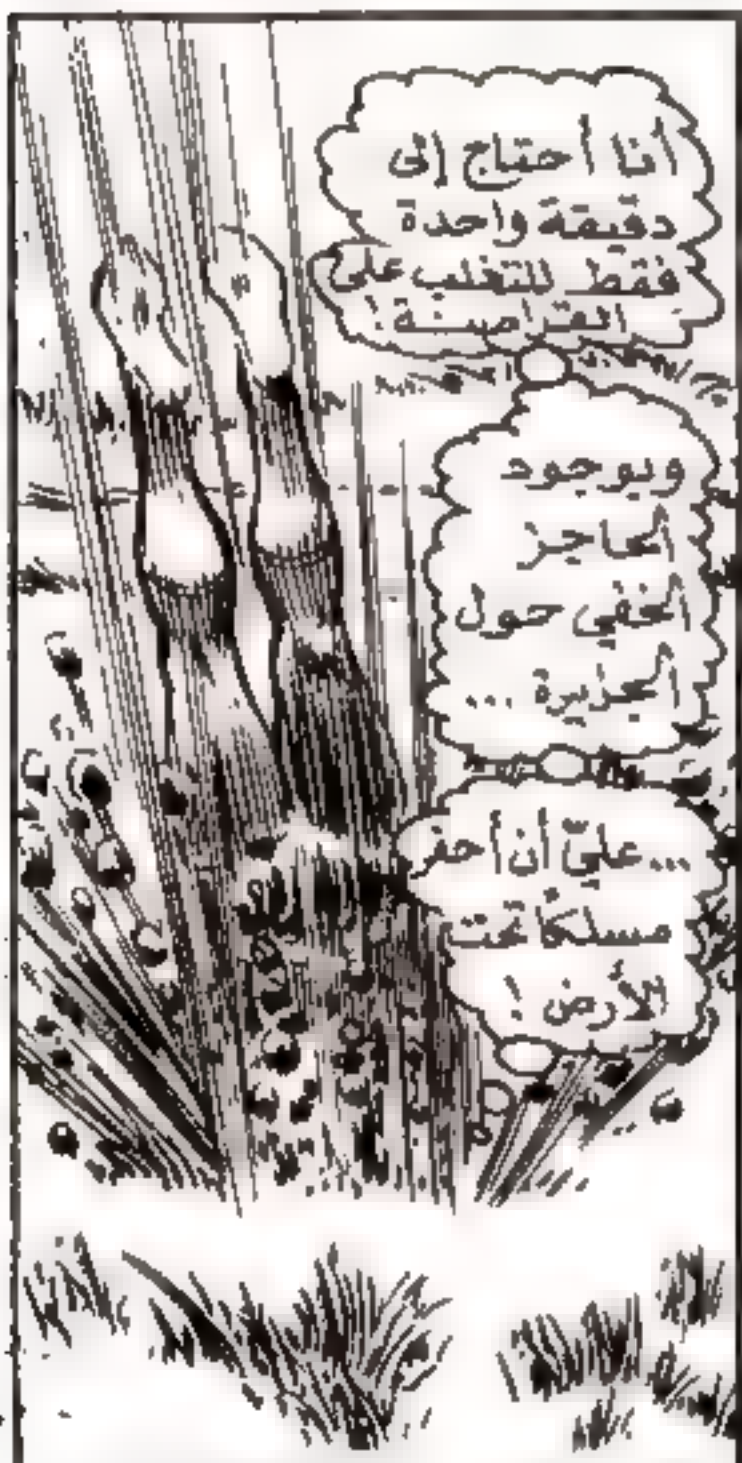 أنا أحتاج إلى
دقيقة واحدة
فقط للتغلب على
القراصنة!
وبوجود
الحاجز
الخفي حول
الجزيرة ...
... عليّ أن أحفر
مسلكًا تحت
الأرض !